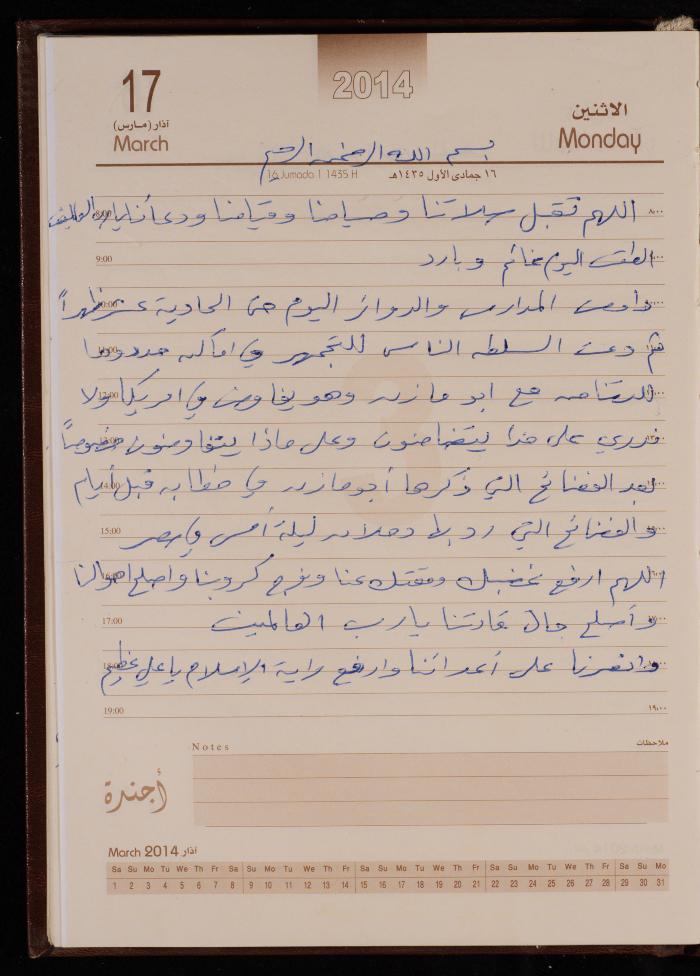 17
2014
الاثنين
آذار (مارس)
March
Monday
بسم الله الرحمن الرحيم
16 Jumada I 1435 H
١٦ جمادى الأول ١٤٣٥هـ
اللهم تقبل صلاتنا وصيامنا وقيامنا ودعائنا يارب العالمين
8:00
٨:٠٠
الطقس اليوم غائم وبارد
9:00
داومت المدارس والدوائر اليوم حتى الحادية عشر ظهراً
10:00
ثم دعت السلطه الناس للتجمهر في اماكن حددوها
للتضامن مع ابو مازن وهو يفاوض في امريكا ولا
12:00
ندري على مذا يتضامنون وعلى ماذا يتفاوضون خصوصاً
بعد الفضائح التي ذكرها أبو مازن في خطابه قبل أيام
14:00
والفضائح التي رد بها دحلان ليلة أمس في مصر
15:00
اللهم ارفع غضبك ومقتك عنا وفرج كروبنا واصلح احوالنا
وأصلح حال قادتنا يارب العالمين
17:00
وانصرنا على أعدائنا وارفع راية الإسلام يا علي عظيم
18:00
19:00
١٩:٠٠
Notes
ملاحظات
أجندة
March 2014 آذار
Sa Su Mo Tu We Th Fr Sa Su Mo Tu We Th Fr Sa Su Mo Tu We Th Fr Sa Su Mo Tu We Th Fr Sa Su Mo
1 2 3 4 5 6 7 8 9 10 11 12 13 14 15 16 17 18 19 20 21 22 23 24 25 26 27 28 29 30 31